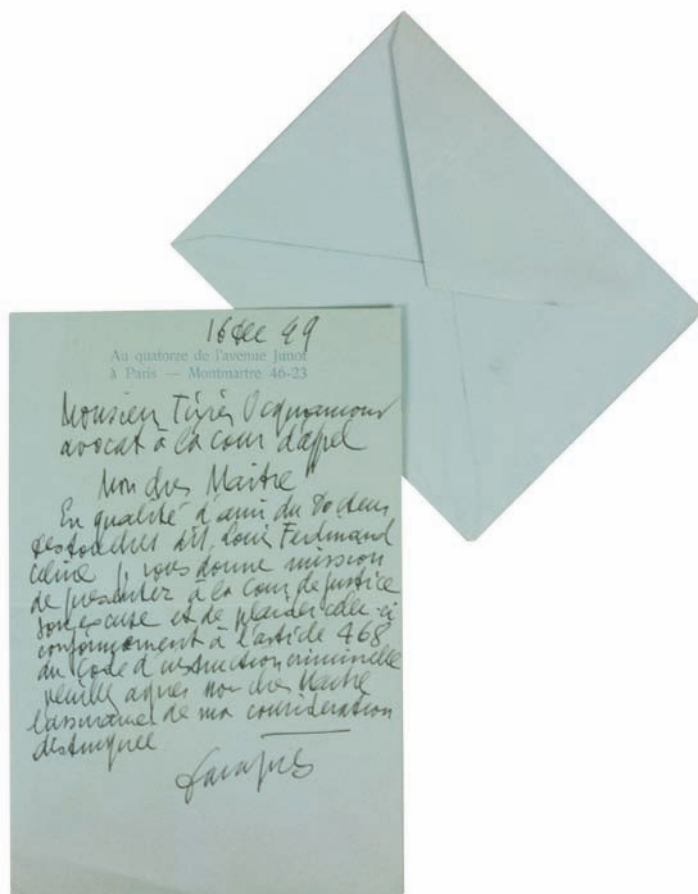 16 dec 49
Au quatorze de l'avenue Junot
à Paris — Montmartre 46-23
Monsieur
avocat à la cour d'apel
Mon cher Maitre
En qualité d'ami du Docteur
Destouches dit Louis Ferdinand
Céline j vous donne mission
de presenter à la cour de justice
son excuse et de plaider celle-ci
conformement à l'article 468
du Code d'instruction criminelle
veuillez agreer mon cher Maitre
l'assurance de ma consideration
distinguée